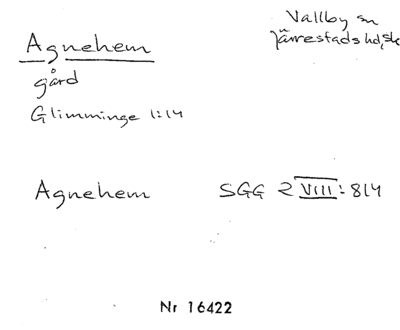 Agnehem
Vallby sn
Järrestads hd, Sk
gård
Glimminge 1:14
Agnehem SGG 2 VIII: 814
Nr 16422